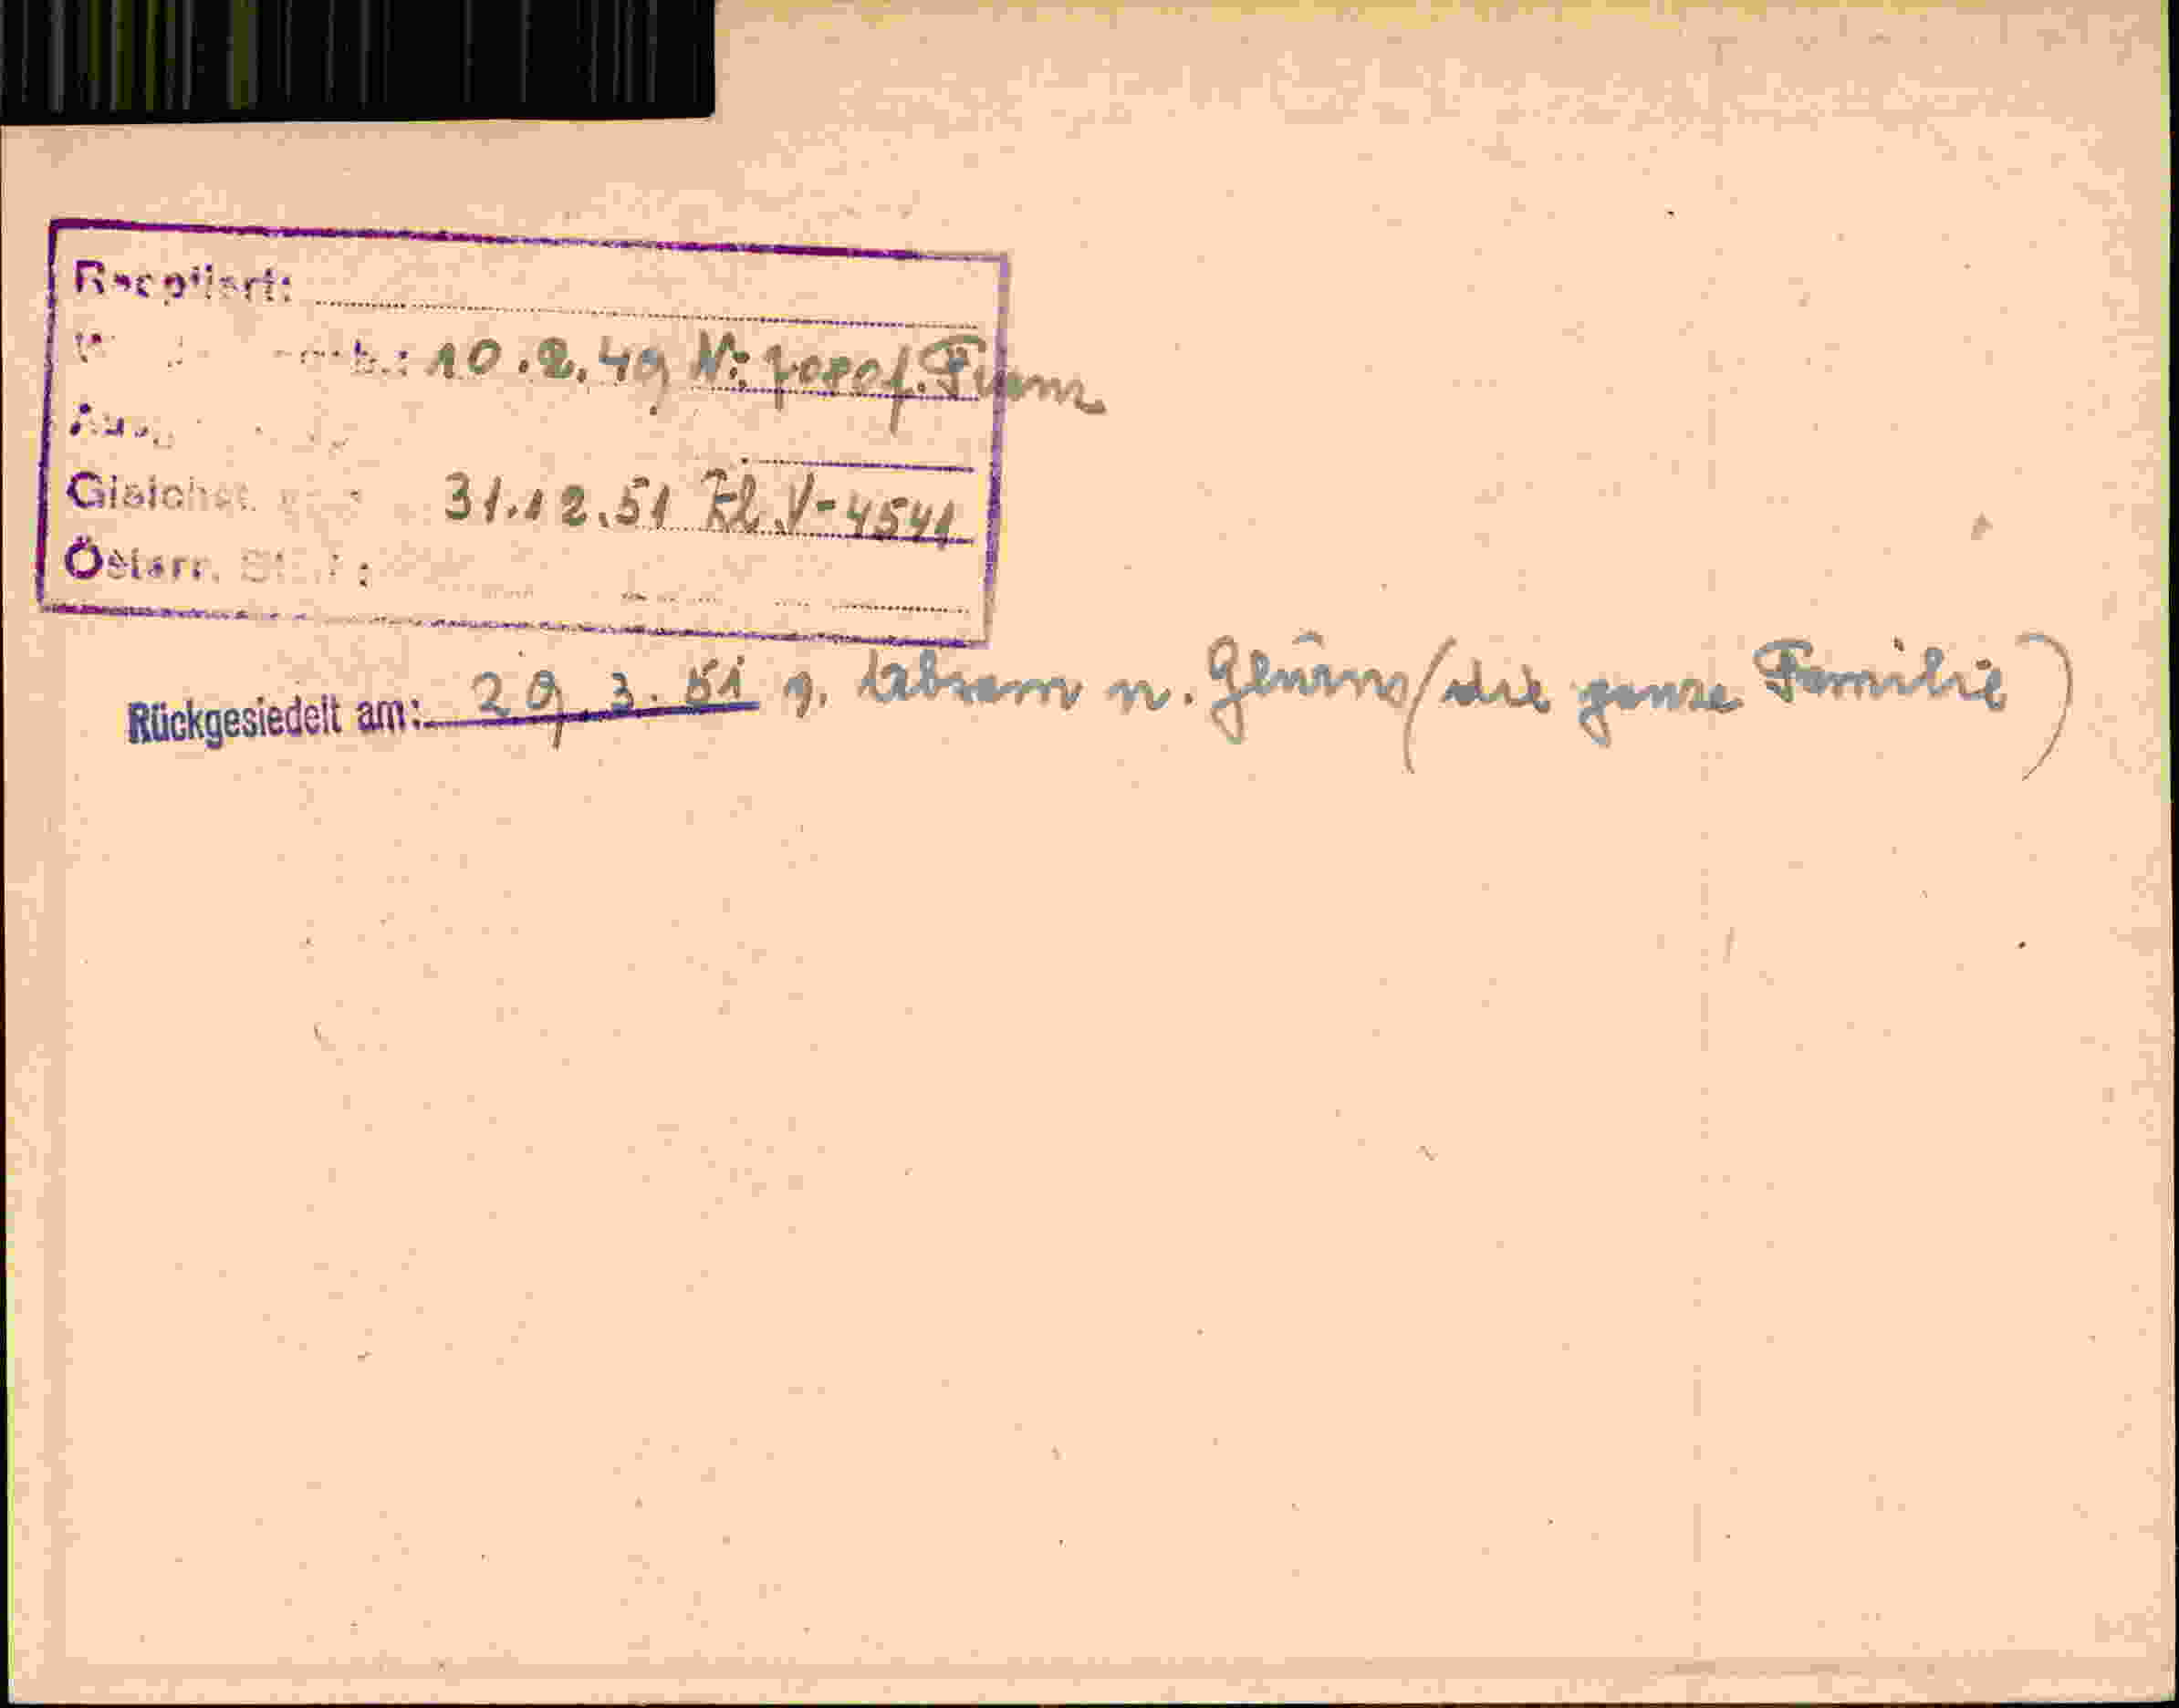 Reoptiert:
10.2.49 N: Josef. Firm
Gleichst.
31.12.51 Zl. V-4541
Österr. St.
Rückgesiedelt am: 29.3.51 n. Glurns (die ganze Familie)